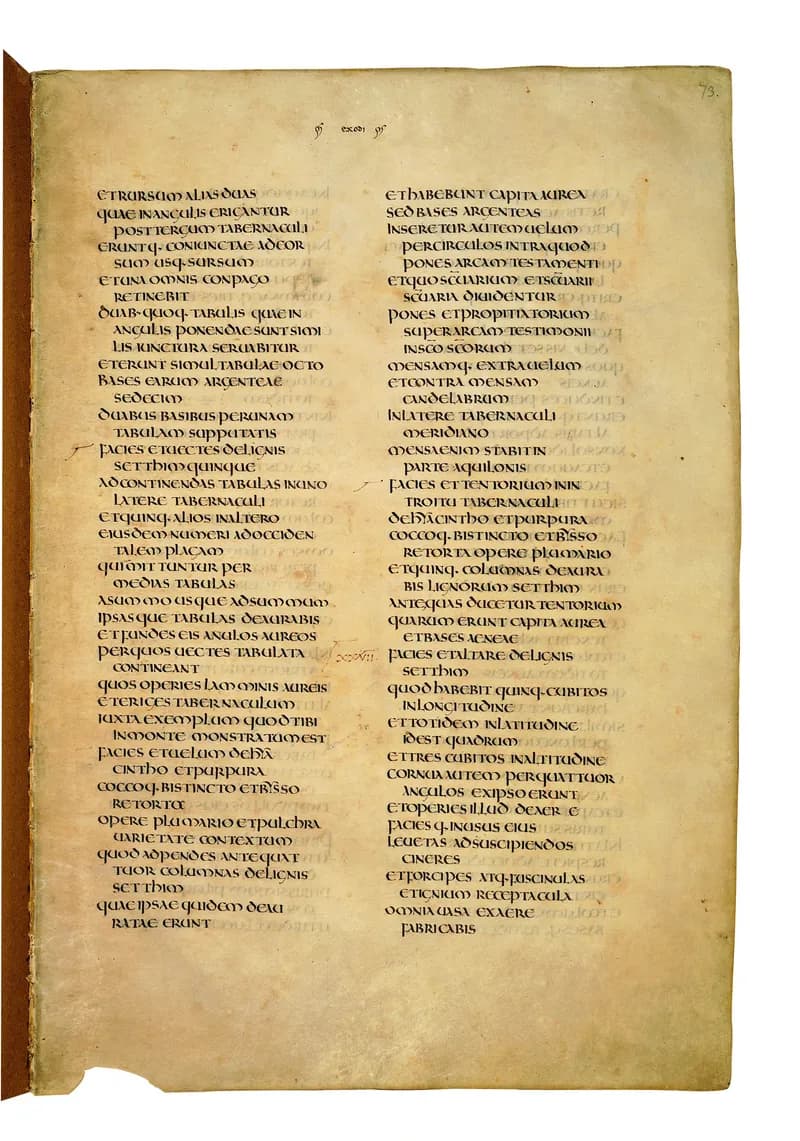 73.
EXODI
ET RURSUM ALIAS DUAS
QUAE IN ANGULIS ERIGANTUR
POST TERGUM TABERNACULI
ERUNTQ· CONIUNCTAE A DEOR
SUM USQ· SURSUM
ET UNA OMNIS CONPAGO
RETINEBIT
DUAB· QUOQ· TABULIS QUAE IN
ANGULIS PONENDAE SUNT SIMI
LIS IUNCTURA SERUABITUR
ET ERUNT SIMUL TABULAE OCTO
BASES EARUM ARGENTEAE
SEDECIM
DUABUS BASIBUS PER UNAM
TABULAM SUPPUTATIS
FACIES ET UECTES DE LIGNIS
SETTHIM QUINQUE
AD CONTINENDAS TABULAS IN UNO
LATERE TABERNACULI
ET QUINQ· ALIOS IN ALTERO
EIUSDEM NUMERI AD OCCIDEN
TALEM PLAGAM
QUI MITTUNTUR PER
MEDIAS TABULAS
A SUMMO USQUE AD SUMMUM
IPSASQUE TABULAS DEAURABIS
ET FUNDES EIS ANULOS AUREOS
PER QUOS UECTES TABULATA
CONTINEANT
QUOS OPERIES LAMMINIS AUREIS
ET ERIGES TABERNACULUM
IUXTA EXEMPLUM QUOD TIBI
IN MONTE MONSTRATUM EST
FACIES ET UELUM DE HYA
CINTHO ET PURPURA
COCCOQ· BIS TINCTO ET BYSSO
RETORTA
OPERE PLUMARIO ET PULCHRA
UARIETATE CONTEXTUM
QUOD ADPENDES ANTE QUAT
TUOR COLUMNAS DE LIGNIS
SETTHIM
QUAE IPSAE QUIDEM DEAU
RATAE ERUNT
ET HABEBUNT CAPITA AUREA
SED BASES ARGENTEAS
INSERETUR AUTEM UELUM
PER CIRCULOS INTRA QUOD
PONES ARCAM TESTAMENTI
ET QUO SC̅UARIUM ET SC̅UARII
SC̅UARIA DIUIDENTUR
PONES ET PROPITIATORIUM
SUPER ARCAM TESTIMONII
IN SC̅O SC̅ORUM
MENSAMQ· EXTRA UELUM
ET CONTRA MENSAM
CANDELABRUM
IN LATERE TABERNACULI
MERIDIANO
MENSA ENIM STABIT IN
PARTE AQUILONIS
FACIES ET TENTORIUM IN IN
TROITU TABERNACULI
DE HYACINTHO ET PURPURA
COCCOQ· BIS TINCTO ET BYSSO
RETORTA OPERE PLUMARIO
ET QUINQ· COLUMNAS DEAURA
BIS LIGNORUM SETTHIM
ANTE QUAS DUCETUR TENTORIUM
QUARUM ERUNT CAPITA AUREA
ET BASES AENEAE
XXVII
FACIES ET ALTARE DE LIGNIS
SETTHIM
QUOD HABEBIT QUINQ· CUBITOS
IN LONGITUDINE
ET TOTIDEM IN LATITUDINE
IDEST QUADRUM
ET TRES CUBITOS IN ALTITUDINE
CORNUA AUTEM PER QUATTUOR
ANGULOS EX IPSO ERUNT
ET OPERIES ILLUD DE AERE
FACIESQ· IN USUS EIUS
LEUETAS AD SUSCIPIENDOS
CINERES
ET FORCIPES ATQ· FUSCINULAS
ET IGNIUM RECEPTACULA
OMNIA UASA EX AERE
FABRICABIS